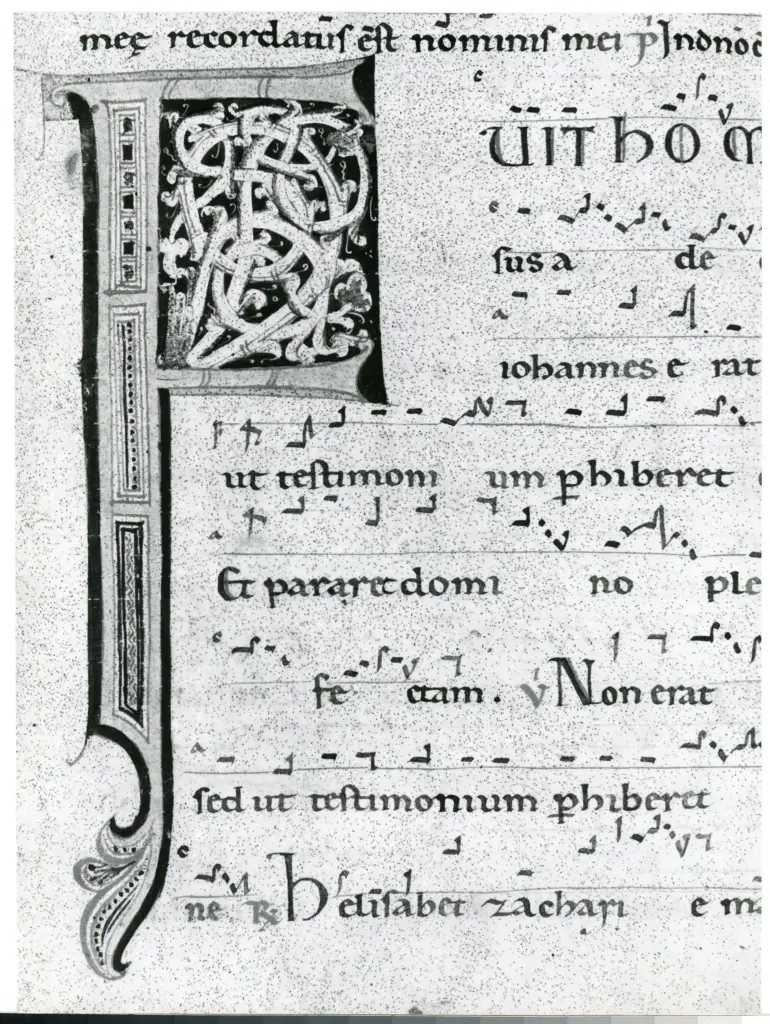 meę recordatuſ ēſt nōminiſ mei p̄ Jn nōc
F UIT hO M
ſus a de
iohannes e rat
ut teſtimoni um p̱hiberet
Et pararet domi no ple
fe ctam . v̇ Non erat
ſed ut teſtimonium p̱hiberet
ne ℟ heliſabet zachari e m